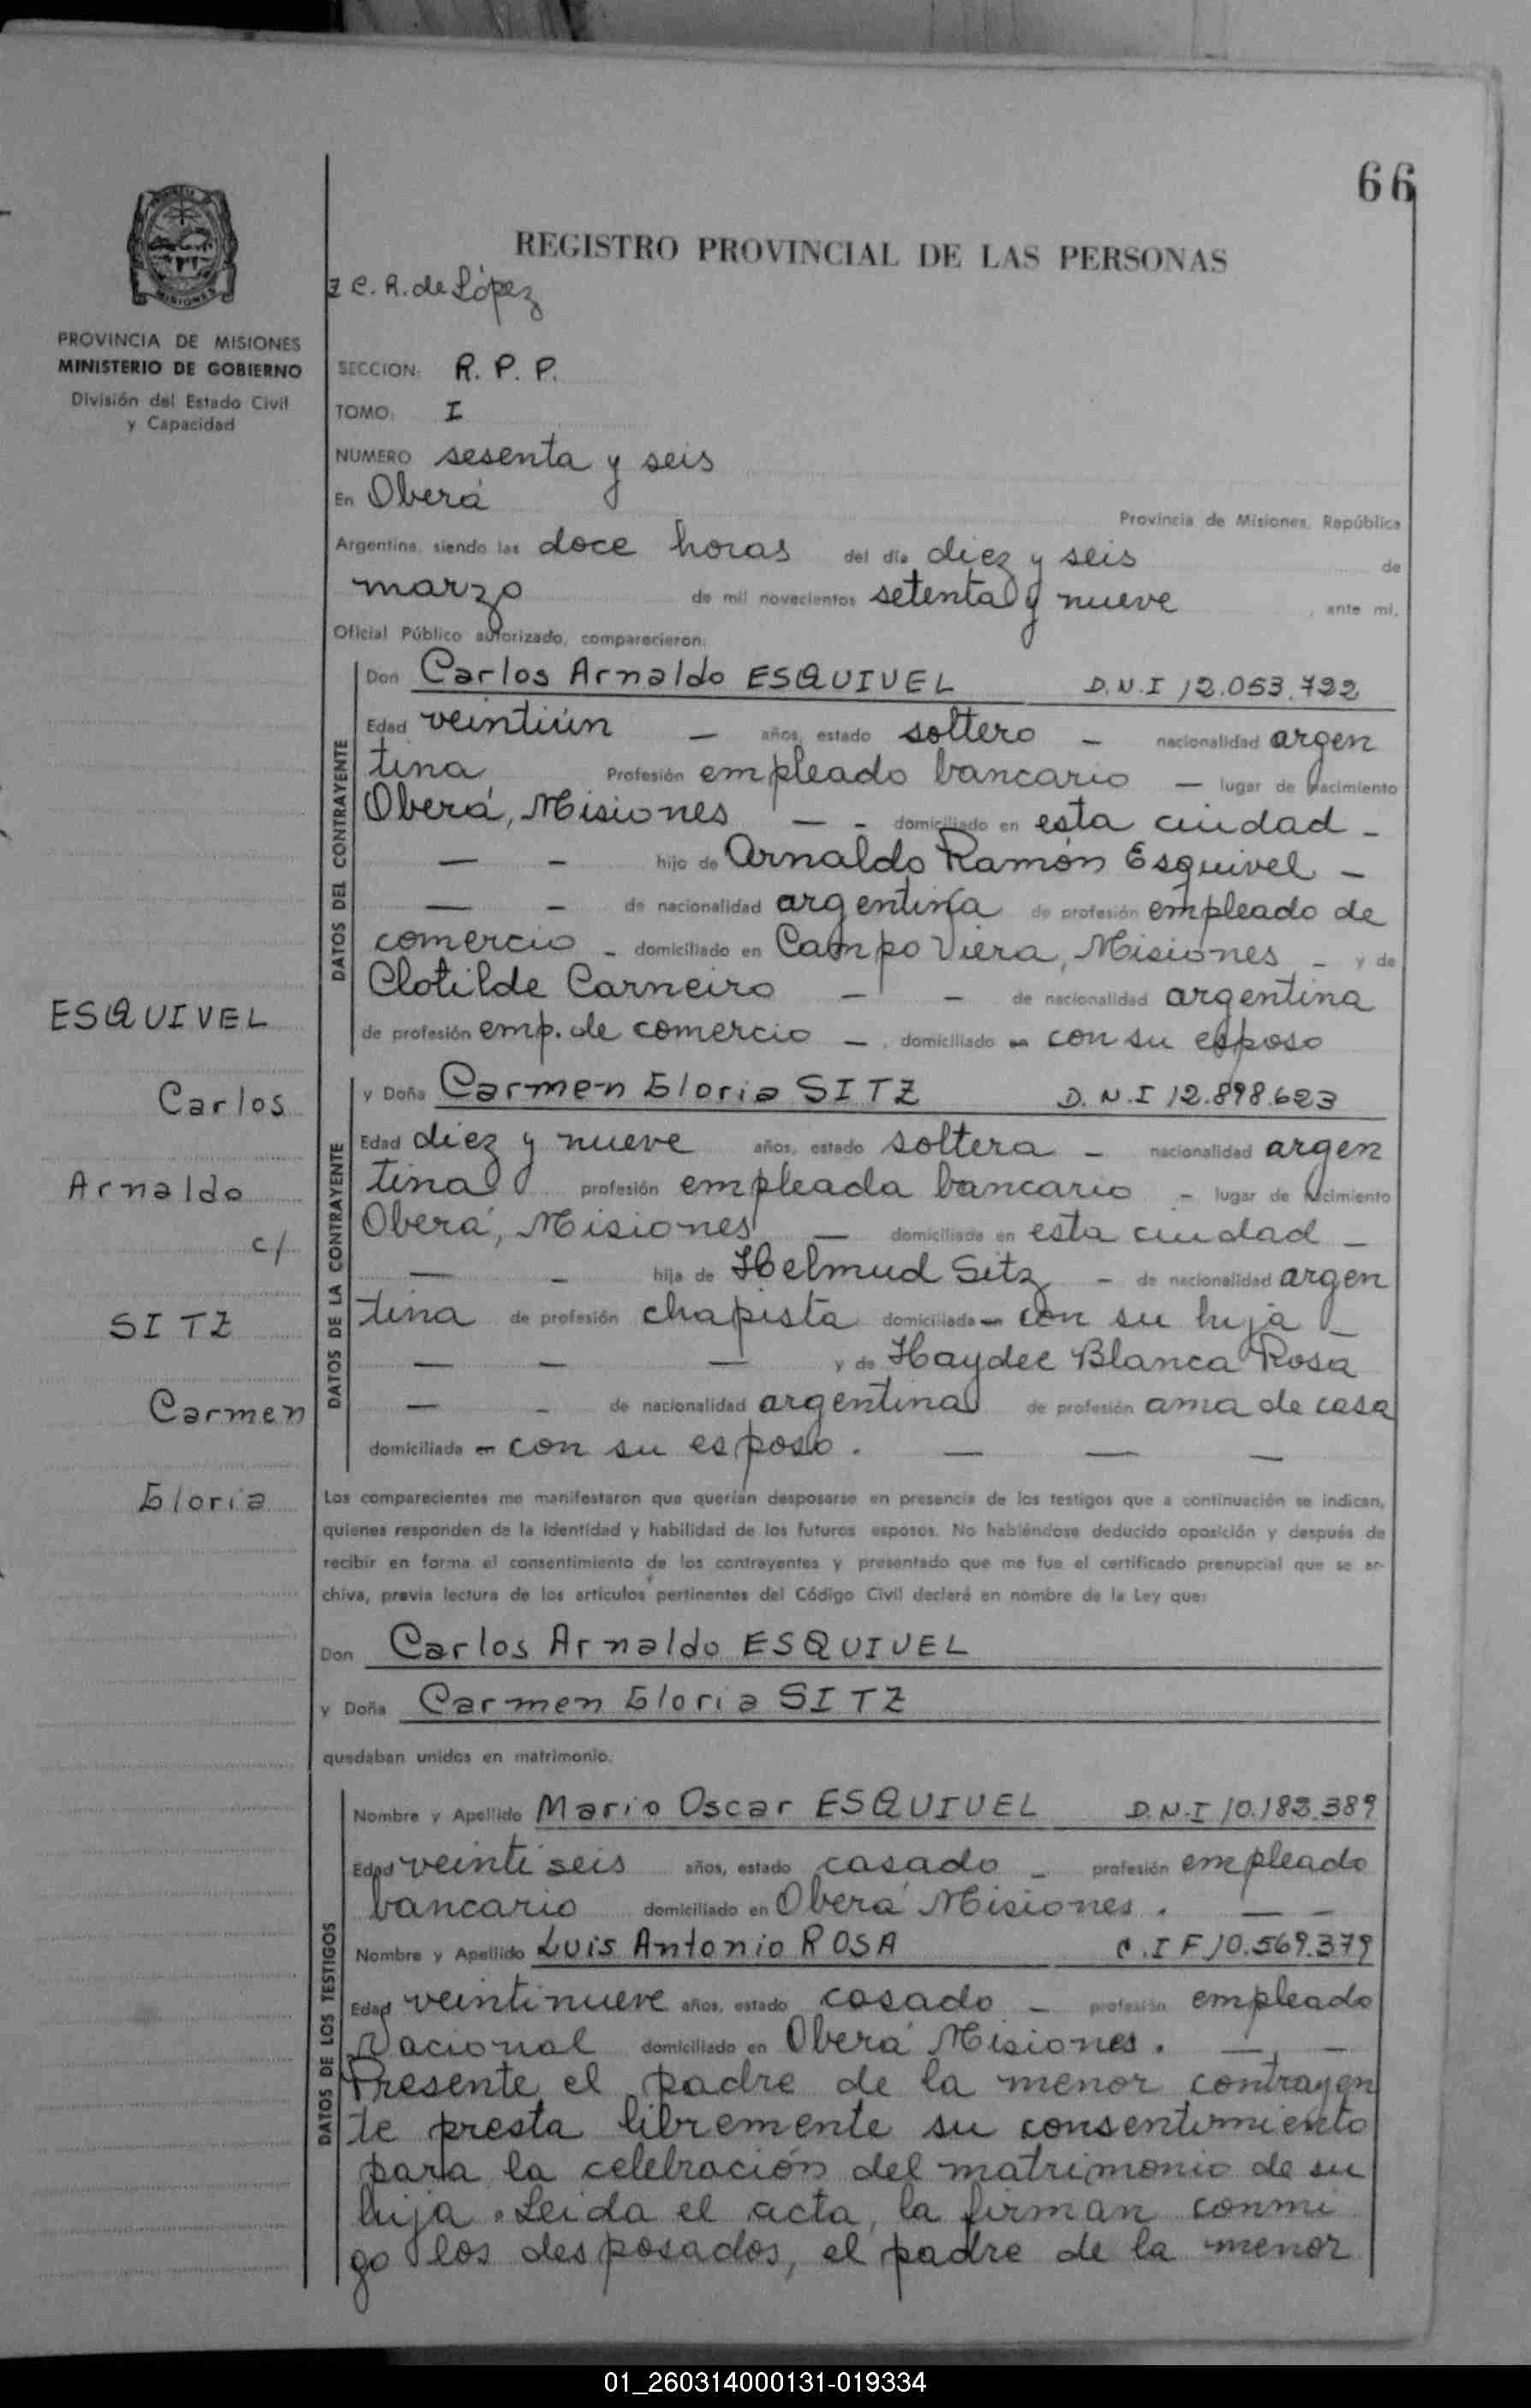 66
REGISTRO PROVINCIAL DE LAS PERSONAS
C. R. de López
MISIONES
PROVINCIA DE MISIONES
MINISTERIO DE GOBIERNO
División del Estado Civil
y Capacidad
SECCION: R. P. P.
TOMO: I
NUMERO sesenta y seis
En Oberá
Provincia de Misiones, República
Argentina, siendo las doce horas del día diez y seis de
marzo de mil novecientos setenta y nueve, ante mí,
Oficial Público autorizado, comparecieron:
DATOS DEL CONTRAYENTE
Don Carlos Arnaldo ESQUIVEL D.N.I 12.053.722
Edad veintiún — años, estado soltero — nacionalidad argen
tina Profesión empleado bancario — lugar de nacimiento
Oberá, Misiones — - domiciliado en esta ciudad -
— - hijo de Arnaldo Ramón Esquivel -
— - de nacionalidad argentina de profesión empleado de
comercio - domiciliado en Campo Viera, Misiones - y de
Clotilde Carneiro — - de nacionalidad argentina
de profesión emp. de comercio —, domiciliado en con su esposo
DATOS DE LA CONTRAYENTE
y Doña Carmen Gloria SITZ D.N.I 12.898.623
Edad diez y nueve años, estado soltera - nacionalidad argen
tina profesión empleada bancario - lugar de nacimiento
Oberá, Misiones — domiciliada en esta ciudad -
— - hija de Helmud Sitz - de nacionalidad argen
tina de profesión chapista domiciliada en con su hija -
— — — y de Haydee Blanca Rosa
— - de nacionalidad argentina de profesión ama de casa
domiciliada en con su esposo. — — —
ESQUIVEL
Carlos
Arnaldo
c/
SITZ
Carmen
Gloria
Los comparecientes me manifestaron que querían desposarse en presencia de los testigos que a continuación se indican,
quienes responden de la identidad y habilidad de los futuros esposos. No habiéndose deducido oposición y después de
recibir en forma el consentimiento de los contrayentes y presentado que me fue el certificado prenupcial que se ar-
chiva, previa lectura de los artículos pertinentes del Código Civil declaré en nombre de la Ley que:
Don Carlos Arnaldo ESQUIVEL
y Doña Carmen Gloria SITZ
quedaban unidos en matrimonio.
DATOS DE LOS TESTIGOS
Nombre y Apellido Mario Oscar ESQUIVEL D.N.I 10.183.389
Edad veintiseis años, estado casado - profesión empleado
bancario domiciliado en Oberá Misiones. — -
Nombre y Apellido Luis Antonio ROSA C.I F 10.569.379
Edad veintinueve años, estado casado - profesión empleado
Nacional domiciliado en Oberá Misiones. — -
Presente el padre de la menor contrayen
te presta libremente su consentimiento
para la celebración del matrimonio de su
hija. Leida el acta, la firman conmi
go los desposados, el padre de la menor
01_260314000131-019334